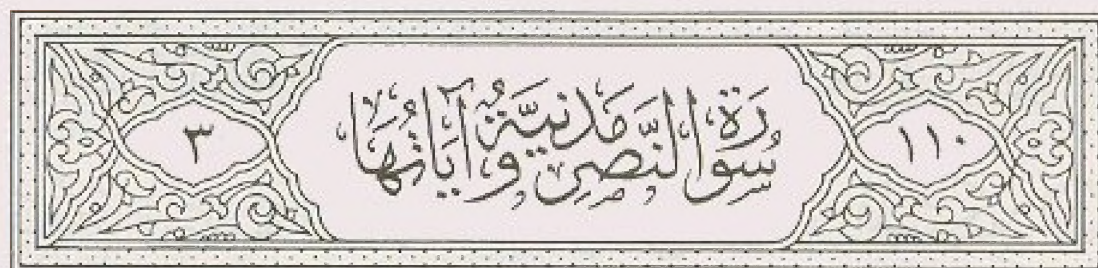 ١١٠ سُورَةُ النَّصْرِ مَدَنِيَّةٌ وَآيَاتُهَا ٣